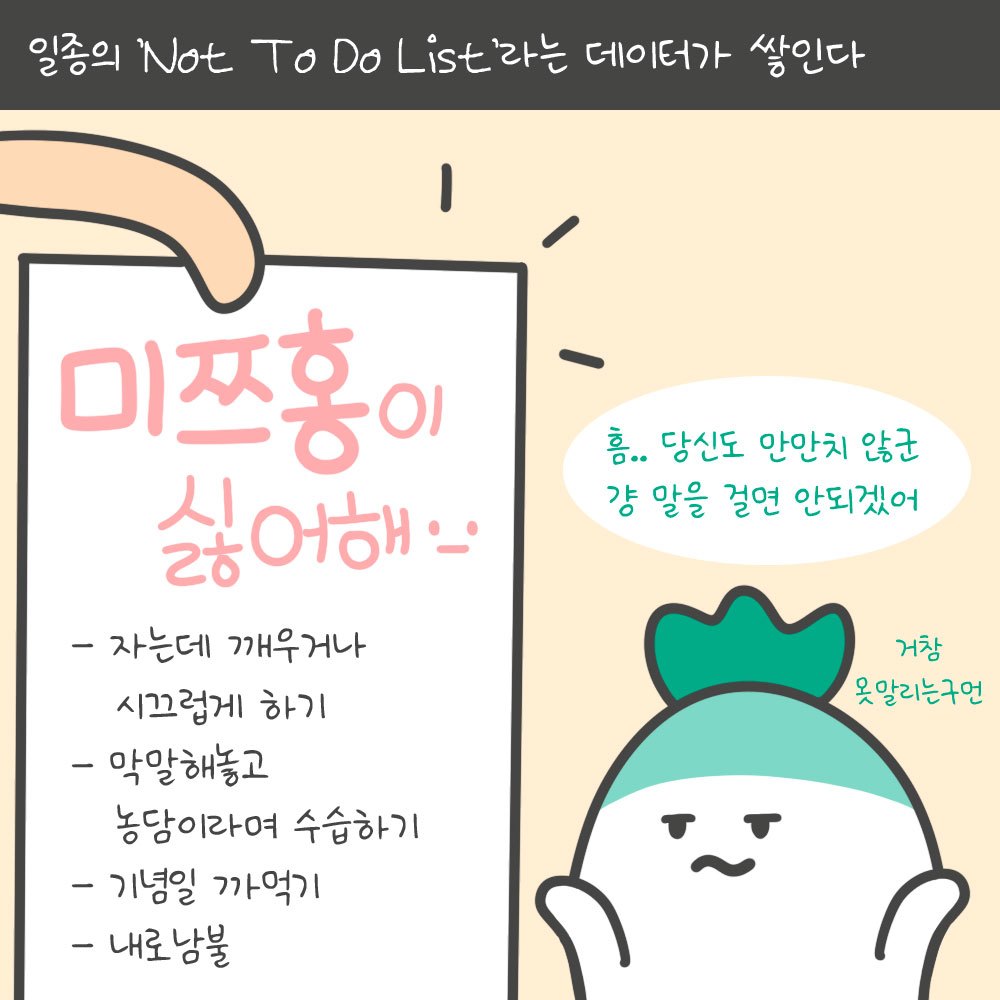 일종의 'Not To Do List'라는 데이터가 쌓인다
미쯔홍이
싫어해
- 자는데 깨우거나
시끄럽게 하기
- 막말해놓고
농담이라며 수습하기
- 기념일 까먹기
- 내로남불
흠.. 당신도 만만치 않군
걍 말을 걸면 안되겠어
거참
못말리는구먼